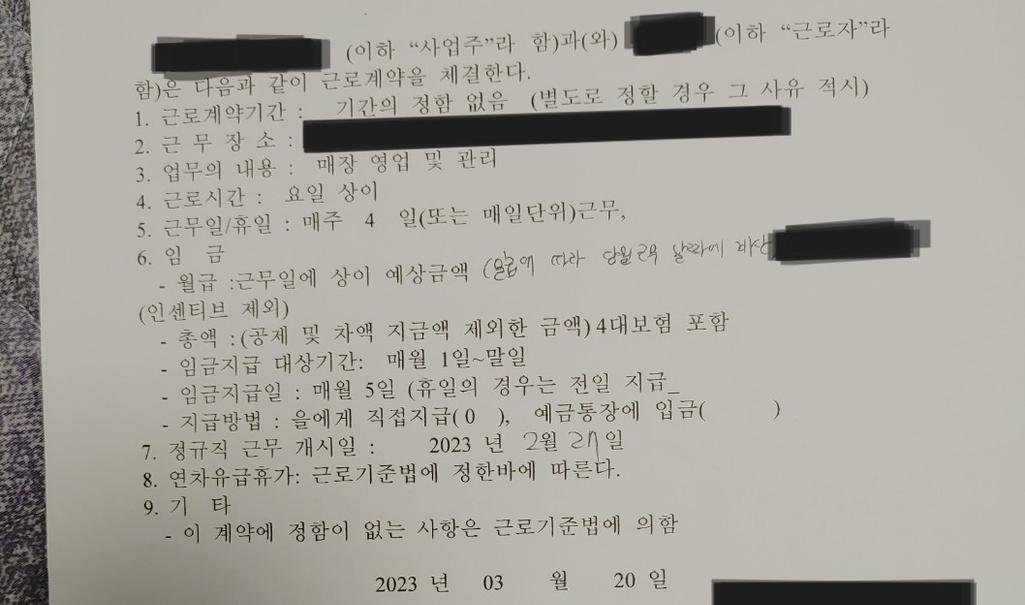 (이하 “사업주”라 함)과(와) (이하 “근로자”라
함)은 다음과 같이 근로계약을 체결한다.
1. 근로계약기간 : 기간의 정함 없음 (별도로 정할 경우 그 사유 적시)
2. 근 무 장 소 :
3. 업무의 내용 : 매장 영업 및 관리
4. 근로시간 : 요일 상이
5. 근무일/휴일 : 매주 4 일(또는 매일단위)근무,
6. 임 금
- 월급 :근무일에 상이 예상금액 ( 따라 당월
(인센티브 제외)
- 총액 :(공제 및 차액 지급액 제외한 금액) 4대보험 포함
- 임금지급 대상기간: 매월 1일~말일
- 임금지급일 : 매월 5일 (휴일의 경우는 전일 지급_
- 지급방법 : 을에게 직접지급( 0 ), 예금통장에 입금( )
7. 정규직 근무 개시일 : 2023 년 2월 일
8. 연차유급휴가: 근로기준법에 정한바에 따른다.
9. 기 타
- 이 계약에 정함이 없는 사항은 근로기준법에 의함
2023 년 03 월 20 일